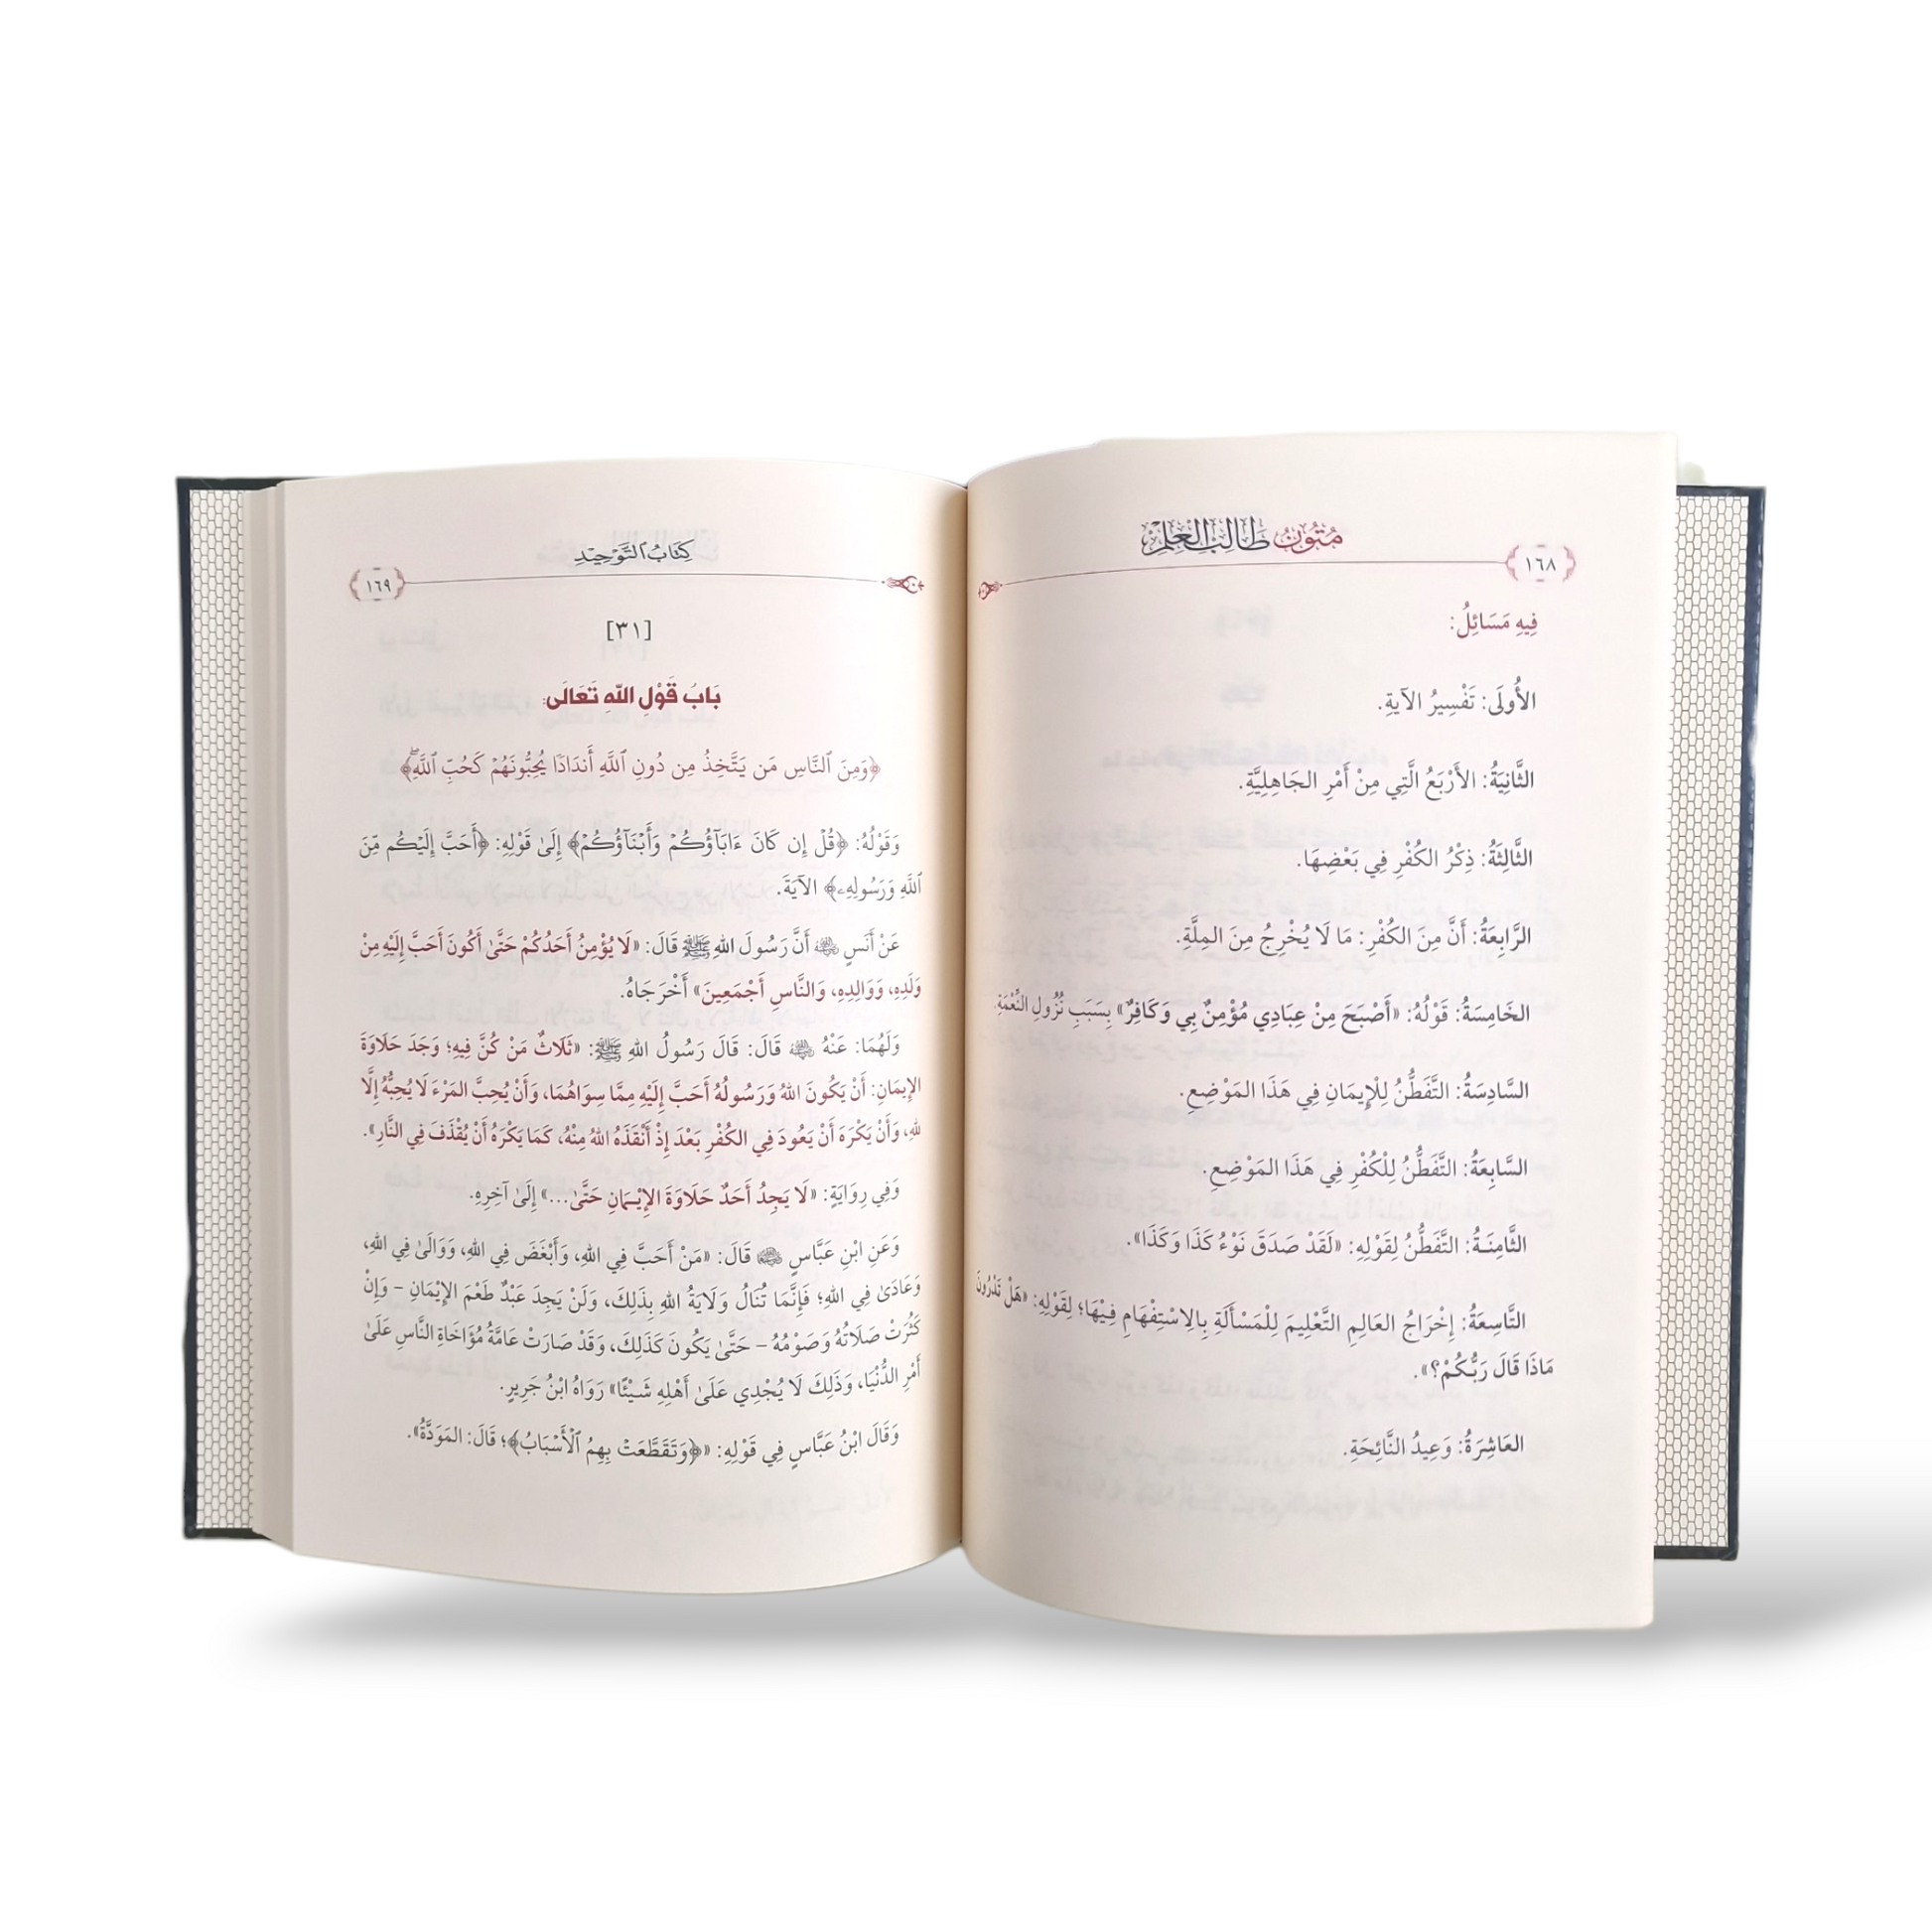 مُتُونُ طَالِبِ الْعِلْمِ
١٦٨
فِيهِ مَسَائِلُ:
الأُولَى: تَفْسِيرُ الآيَةِ.
الثَّانِيَةُ: الأَرْبَعُ الَّتِي مِنْ أَمْرِ الجَاهِلِيَّةِ.
الثَّالِثَةُ: ذِكْرُ الكُفْرِ فِي بَعْضِهَا.
الرَّابِعَةُ: أَنَّ مِنَ الكُفْرِ: مَا لَا يُخْرِجُ مِنَ المِلَّةِ.
الخَامِسَةُ: قَوْلُهُ: «أَصْبَحَ مِنْ عِبَادِي مُؤْمِنٌ بِي وَكَافِرٌ» بِسَبَبِ نُزُولِ النِّعْمَةِ.
السَّادِسَةُ: التَّفَطُّنُ لِلْإِيمَانِ فِي هَذَا المَوْضِعِ.
السَّابِعَةُ: التَّفَطُّنُ لِلْكُفْرِ فِي هَذَا المَوْضِعِ.
الثَّامِنَةُ: التَّفَطُّنُ لِقَوْلِهِ: «لَقَدْ صَدَقَ نَوْءُ كَذَا وَكَذَا».
التَّاسِعَةُ: إِخْرَاجُ العَالِمِ التَّعْلِيمَ لِلْمَسْأَلَةِ بِالِاسْتِفْهَامِ فِيْهَا؛ لِقَوْلِهِ: «هَلْ تَدْرُونَ
مَاذَا قَالَ رَبُّكُمْ؟».
العَاشِرَةُ: وَعِيدُ النَّائِحَةِ.
كِتَابُ التَّوْحِيدِ
١٦٩
[٣١]
بَابُ قَوْلِ اللَّهِ تَعَالَى:
﴿وَمِنَ ٱلنَّاسِ مَن يَتَّخِذُ مِن دُونِ ٱللَّهِ أَندَادًا يُحِبُّونَهُمۡ كَحُبِّ ٱللَّهِۖ﴾
وَقَوْلُهُ: ﴿قُلۡ إِن كَانَ ءَابَآؤُكُمۡ وَأَبۡنَآؤُكُمۡ﴾ إِلَىٰ قَوْلِهِ: ﴿أَحَبَّ إِلَيۡكُم مِّنَ
ٱللَّهِ وَرَسُولِهِۦ﴾ الآيَةَ.
عَنْ أَنَسٍ ﵁ أَنَّ رَسُولَ اللهِ ﷺ قَالَ: «لَا يُؤْمِنُ أَحَدُكُمْ حَتَّىٰ أَكُونَ أَحَبَّ إِلَيْهِ مِنْ
وَلَدِهِ، وَوَالِدِهِ، وَالنَّاسِ أَجْمَعِينَ» أَخْرَجَاهُ.
وَلَهُمَا: عَنْهُ ﵁ قَالَ: قَالَ رَسُولُ اللهِ ﷺ: «ثَلَاثٌ مَنْ كُنَّ فِيهِ؛ وَجَدَ حَلَاوَةَ
الإِيمَانِ: أَنْ يَكُونَ اللهُ وَرَسُولُهُ أَحَبَّ إِلَيْهِ مِمَّا سِوَاهُمَا، وَأَنْ يُحِبَّ المَرْءَ لَا يُحِبُّهُ إِلَّا
لِلهِ، وَأَنْ يَكْرَهَ أَنْ يَعُودَ فِي الكُفْرِ بَعْدَ إِذْ أَنْقَذَهُ اللهُ مِنْهُ، كَمَا يَكْرَهُ أَنْ يُقْذَفَ فِي النَّارِ».
وَفِي رِوَايَةٍ: «لَا يَجِدُ أَحَدٌ حَلَاوَةَ الإِيْمَانِ حَتَّىٰ...» إِلَىٰ آخِرِهِ.
وَعَنِ ابْنِ عَبَّاسٍ ﵄ قَالَ: «مَنْ أَحَبَّ فِي اللهِ، وَأَبْغَضَ فِي اللهِ، وَوَالَىٰ فِي اللهِ،
وَعَادَىٰ فِي اللهِ؛ فَإِنَّمَا تُنَالُ وَلَايَةُ اللهِ بِذَلِكَ، وَلَنْ يَجِدَ عَبْدٌ طَعْمَ الإِيْمَانِ – وَإِنْ
كَثُرَتْ صَلَاتُهُ وَصَوْمُهُ – حَتَّىٰ يَكُونَ كَذَلِكَ، وَقَدْ صَارَتْ عَامَّةُ مُؤَاخَاةِ النَّاسِ عَلَىٰ
أَمْرِ الدُّنْيَا، وَذَلِكَ لَا يُجْدِي عَلَىٰ أَهْلِهِ شَيْئًا» رَوَاهُ ابْنُ جَرِيرٍ.
وَقَالَ ابْنُ عَبَّاسٍ فِي قَوْلِهِ: «﴿وَتَقَطَّعَتۡ بِهِمُ ٱلۡأَسۡبَابُ﴾؛ قَالَ: المَوَدَّةُ».